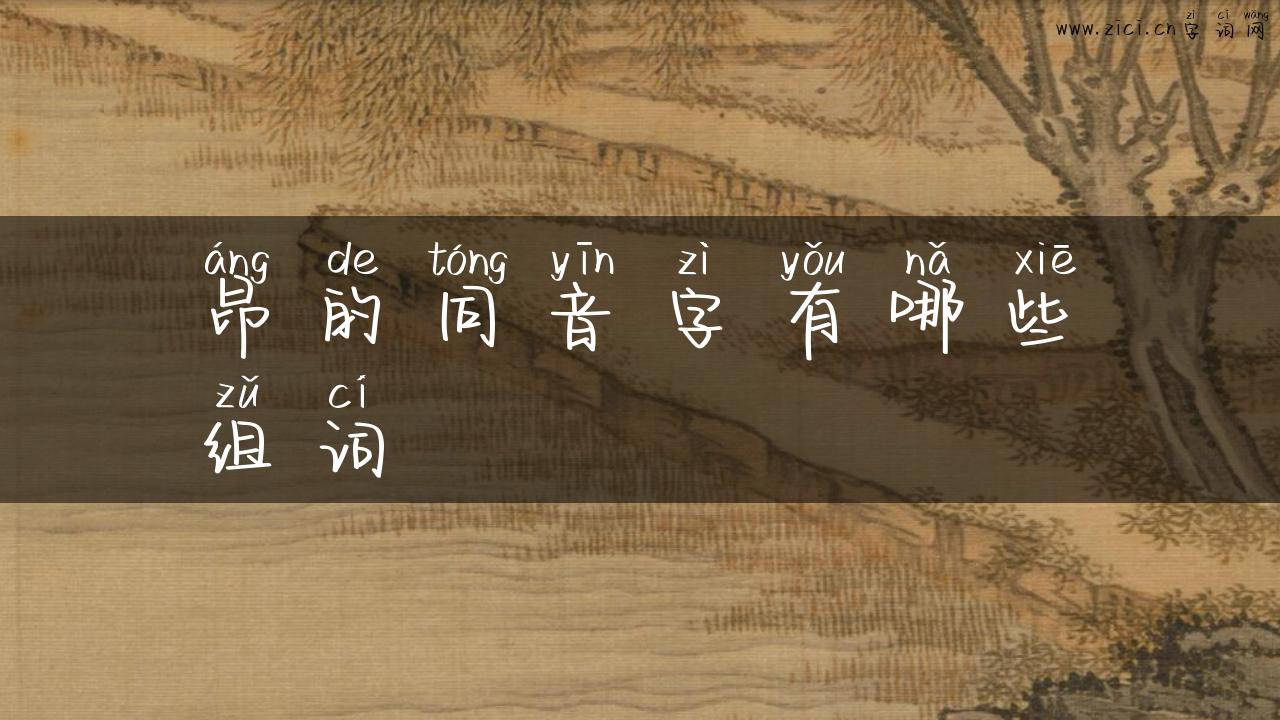 zì cí wǎng
www.zici.cn字词网
áng de tóng yīn zì yǒu nǎ xiē
昂的同音字有哪些
zǔ cí
组词